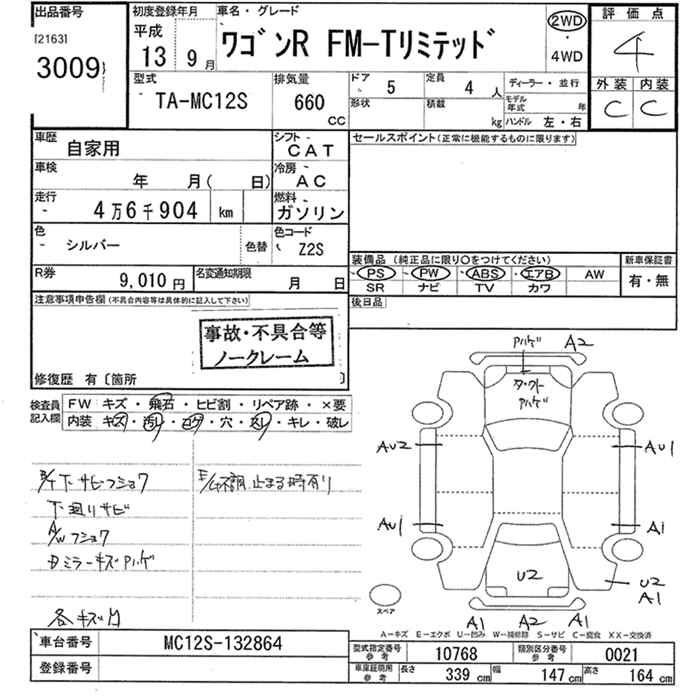 出品番号
[2163]
3009
初度登録年月
平成
13 9月
車名・グレード
ワゴンR FM-Tリミテッド
2WD
・
4WD
評価点
4
外装 内装
C C
型式
TA-MC12S
排気量
660
CC
ドア 5
定員 4人
ディーラー・並行
形状
積載 kg
モデル年式 年
ハンドル 左・右
車歴
自家用
シフト
CAT
セールスポイント(正常に機能するものに限ります)
車検
年 月( 日)
冷房
AC
走行
4万6千904 km
燃料
ガソリン
色
シルバー
色替
色コード
Z2S
装備品(純正品に限り○をつけてください)
新車保証書
PS PW ABS エアB AW
SR ナビ TV カワ
有・無
R券
9,010円
名変通知期限
月 日
後日品
注意事項申告欄(不具合内容等は具体的に記入して下さい)
事故・不具合等
ノークレーム
修復歴 有〔箇所 〕
検査員記入欄
FW キズ・飛石・ヒビ割・リペア跡・×要
内装 キズ・汚レ・コゲ・穴・スレ・キレ・破レ
下サビフショク
不調 止まる時有り
下廻りサビ
A/Wフショク
ミラーキズハゲ
各キズ凹
ハゲ A2
ダクト
ハゲ
AU2
AU1
AU1
A1
U2
U2
A1
スペア
A1 A2 A1
A-キズ E-エクボ U-凹み W-補修跡 S-サビ C-腐食 XX-交換済
車台番号
MC12S-132864
登録番号
型式指定番号
参考
10768
類別区分番号
参考
0021
車庫証明用
参考
長さ 339cm
幅 147cm
高さ 164cm